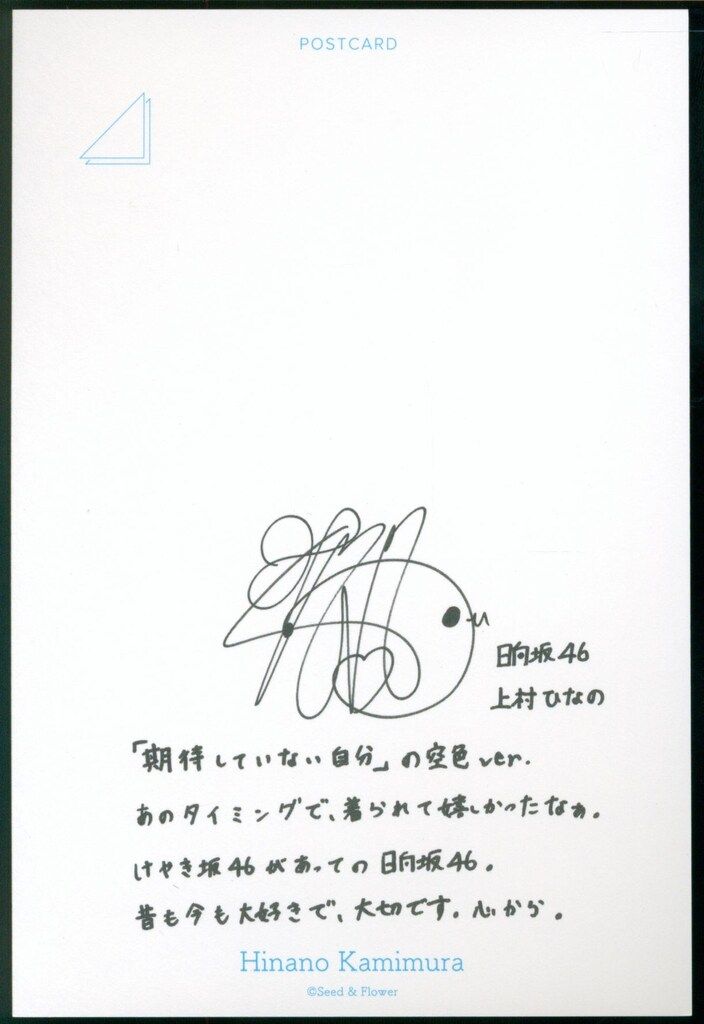 POSTCARD
日向坂46
上村ひなの
「期待していない自分」の空色ver.
あのタイミングで、着られて嬉しかったなぁ。
けやき坂46があっての日向坂46。
昔も今も大好きで、大切です。心から。
Hinano Kamimura
©Seed & Flower